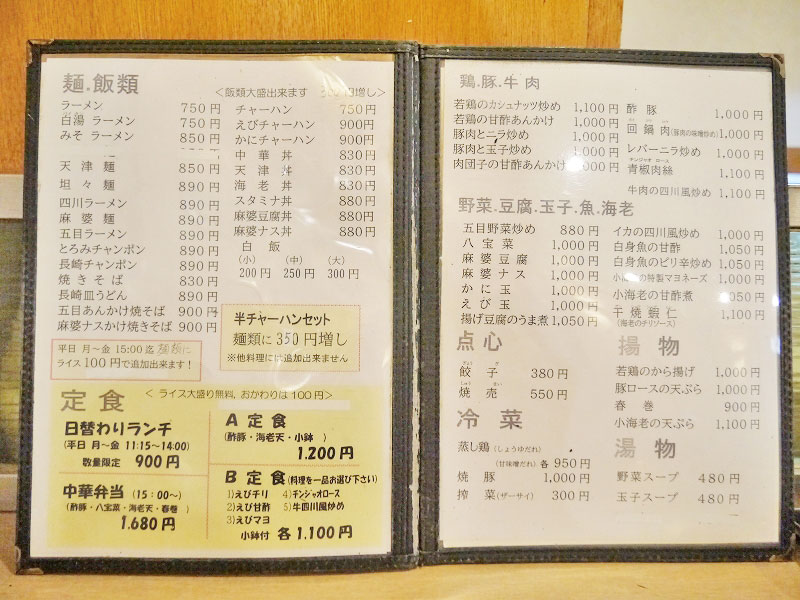 麺.飯類
<飯類大盛出来ます 円増し>
ラーメン 750円
白湯 ラーメン 750円
みそ ラーメン 850円
天津麺 850円
坦々麺 890円
四川ラーメン 890円
麻婆麺 890円
五目ラーメン 890円
とろみチャンポン 890円
長崎チャンポン 890円
焼きそば 830円
長崎皿うどん 890円
五目あんかけ焼そば 900円
麻婆ナスかけ焼きそば 900円
平日 月~金 15:00迄 麺類に
ライス100円で追加出来ます!
チャーハン 750円
えびチャーハン 900円
かにチャーハン 900円
中華丼 830円
天津丼 830円
海老丼 830円
スタミナ丼 880円
麻婆豆腐丼 880円
麻婆ナス丼 880円
白飯
(小) (中) (大)
200円 250円 300円
半チャーハンセット
麺類に350円増し
※他料理には追加出来ません
定食
<ライス大盛り無料, おかわりは100円>
日替わりランチ
(平日 月~金 11:15~14:00)
数量限定 900円
中華弁当 (15:00~)
(酢豚・八宝菜・海老天・春巻)
1.680円
A 定食
(酢豚・海老天・小鉢)
1.200円
B 定食 (料理を一品お選び下さい)
1)えびチリ 4)チンジャオロース
2)えび甘酢 5)牛四川風炒め
3)えびマヨ
小鉢付 各1.100円
鶏.豚.牛肉
若鶏のカシュナッツ炒め 1,100円
若鶏の甘酢あんかけ 1,000円
豚肉とニラ炒め 1,000円
豚肉と玉子炒め 1,000円
肉団子の甘酢あんかけ 1,000円
酢豚 1,000円
回鍋肉(豚肉の味噌炒め) 1,000円
レバーニラ炒め 1,000円
チンジャオ ロース
青椒肉絲 1,100円
牛肉の四川風炒め 1,100円
野菜.豆腐.玉子.魚.海老
五目野菜炒め 880円
八宝菜 1,000円
麻婆豆腐 1,000円
麻婆ナス 1,000円
かに玉 1,000円
えび玉 1,000円
揚げ豆腐のうま煮 1,050円
イカの四川風炒め 1,000円
白身魚の甘酢 1,050円
白身魚のピリ辛炒め 1,050円
小海老の特製マヨネーズ 1,000円
小海老の甘酢煮 050円
干焼蝦仁 1,100円
(海老のチリソース)
点心
餃子 380円
焼売 550円
冷菜
蒸し鶏 (しょうゆだれ)
(甘味噌だれ) 各950円
焼豚 1,000円
搾菜(ザーサイ) 300円
揚物
若鶏のから揚げ 1,000円
豚ロースの天ぷら 1,000円
春巻 900円
小海老の天ぷら 1,100円
湯物
野菜スープ 480円
玉子スープ 480円